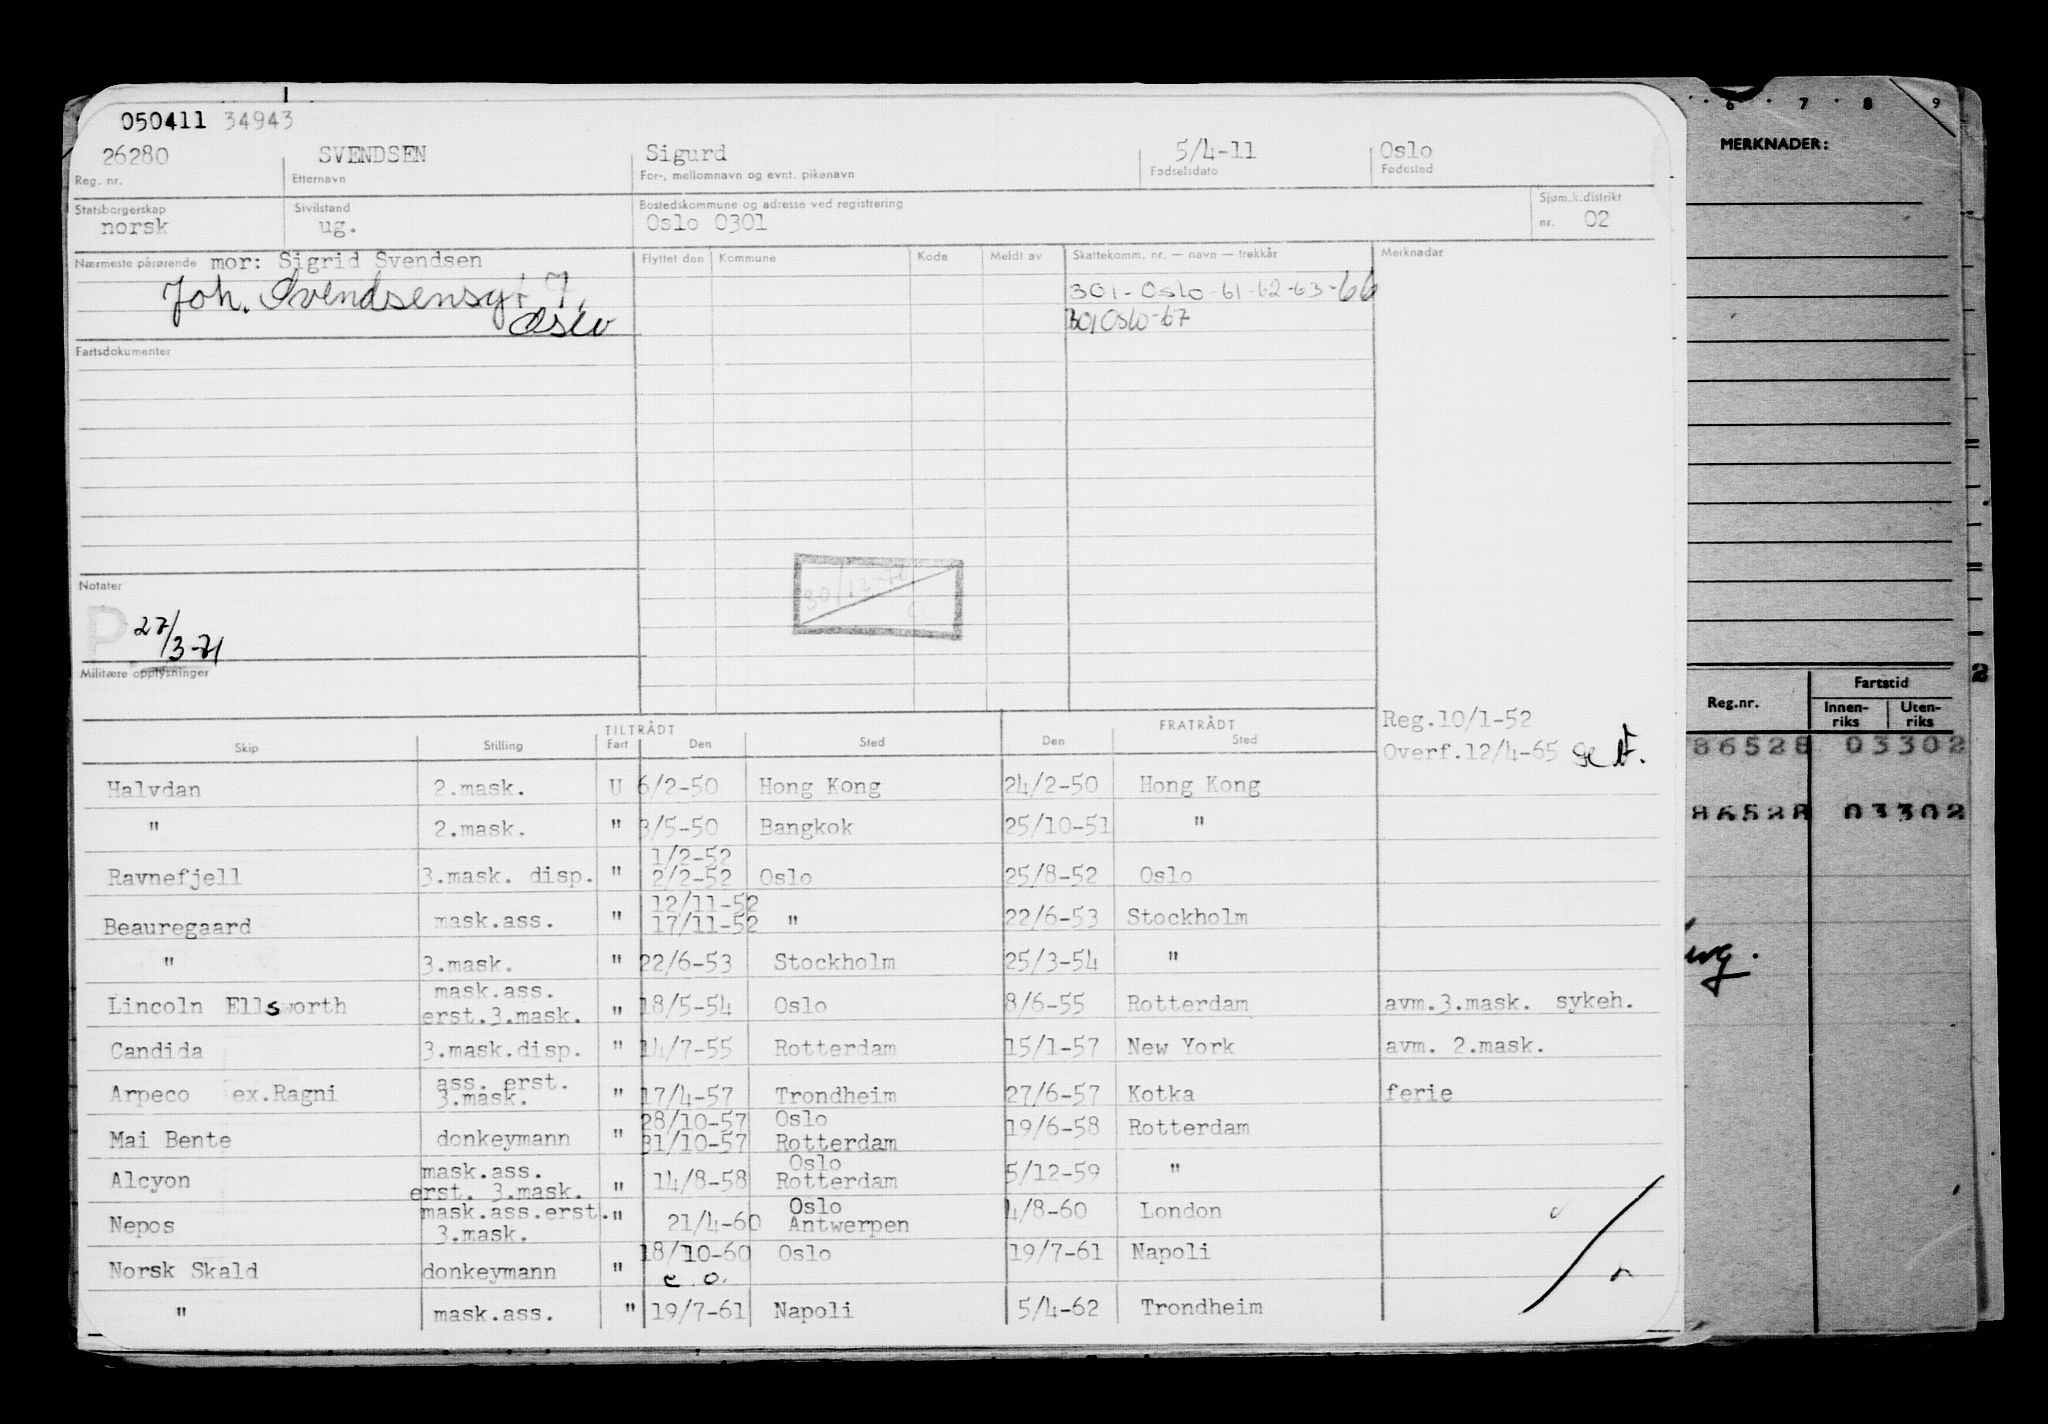 050411 34943
26280 SVENDSEN Sigurd 5/4-11 Oslo
Reg. nr. Etternavn For-, mellomnavn og evnt. pikenavn Fødselsdato Fødested
Statsborgerskap Sivilstand Bostedskommune og adresse ved registrering Sjøm.k.distrikt
norsk ug. Oslo 0301 nr. 02
Nærmeste pårørende mor: Sigrid Svendsen Flyttet den Kommune Kode Meldt av Skattekomm. nr. — navn — trekkår Merknader
Joh. Svendsensgt 7, 301-Oslo-61-62-63-66
Oslo 301 Oslo-67
Fartsdokumenter
Notater
P 27/3-71
30/12-70
Militære opplysninger
TILTRÅDT FRATRÅDT Reg.10/1-52
Skip Stilling Fart Den Sted Den Sted Overf.12/4-65
Halvdan 2.mask. U 6/2-50 Hong Kong 24/2-50 Hong Kong
" 2.mask. " 3/5-50 Bangkok 25/10-51 "
1/2-52
Ravnefjell 3.mask. disp. " 2/2-52 Oslo 25/8-52 Oslo
12/11-52
Beauregaard mask.ass. " 17/11-52 " 22/6-53 Stockholm
" 3.mask. " 22/6-53 Stockholm 25/3-54 "
mask.ass.
Lincoln Ellsworth erst.3.mask. " 18/5-54 Oslo 8/6-55 Rotterdam avm.3.mask. sykeh.
Candida 3.mask.disp. " 14/7-55 Rotterdam 15/1-57 New York avm. 2.mask.
ass. erst.
Arpeco ex.Ragni 3.mask. " 17/4-57 Trondheim 27/6-57 Kotka ferie
28/10-57 Oslo
Mai Bente donkeymann " 31/10-57 Rotterdam 19/6-58 Rotterdam
mask.ass. Oslo
Alcyon erst. 3.mask. " 14/8-58 Rotterdam 5/12-59 "
mask.ass.erst. Oslo
Nepos 3.mask. " 21/4-60 Antwerpen 4/8-60 London
18/10-60 Oslo 19/7-61 Napoli
Norsk Skald donkeymann " e.o.
" mask.ass. " 19/7-61 Napoli 5/4-62 Trondheim
6 7 8 9
MERKNADER:
2
Reg.nr. Fartstid
Innen-riks Uten-riks
86528 03302
86528 03302